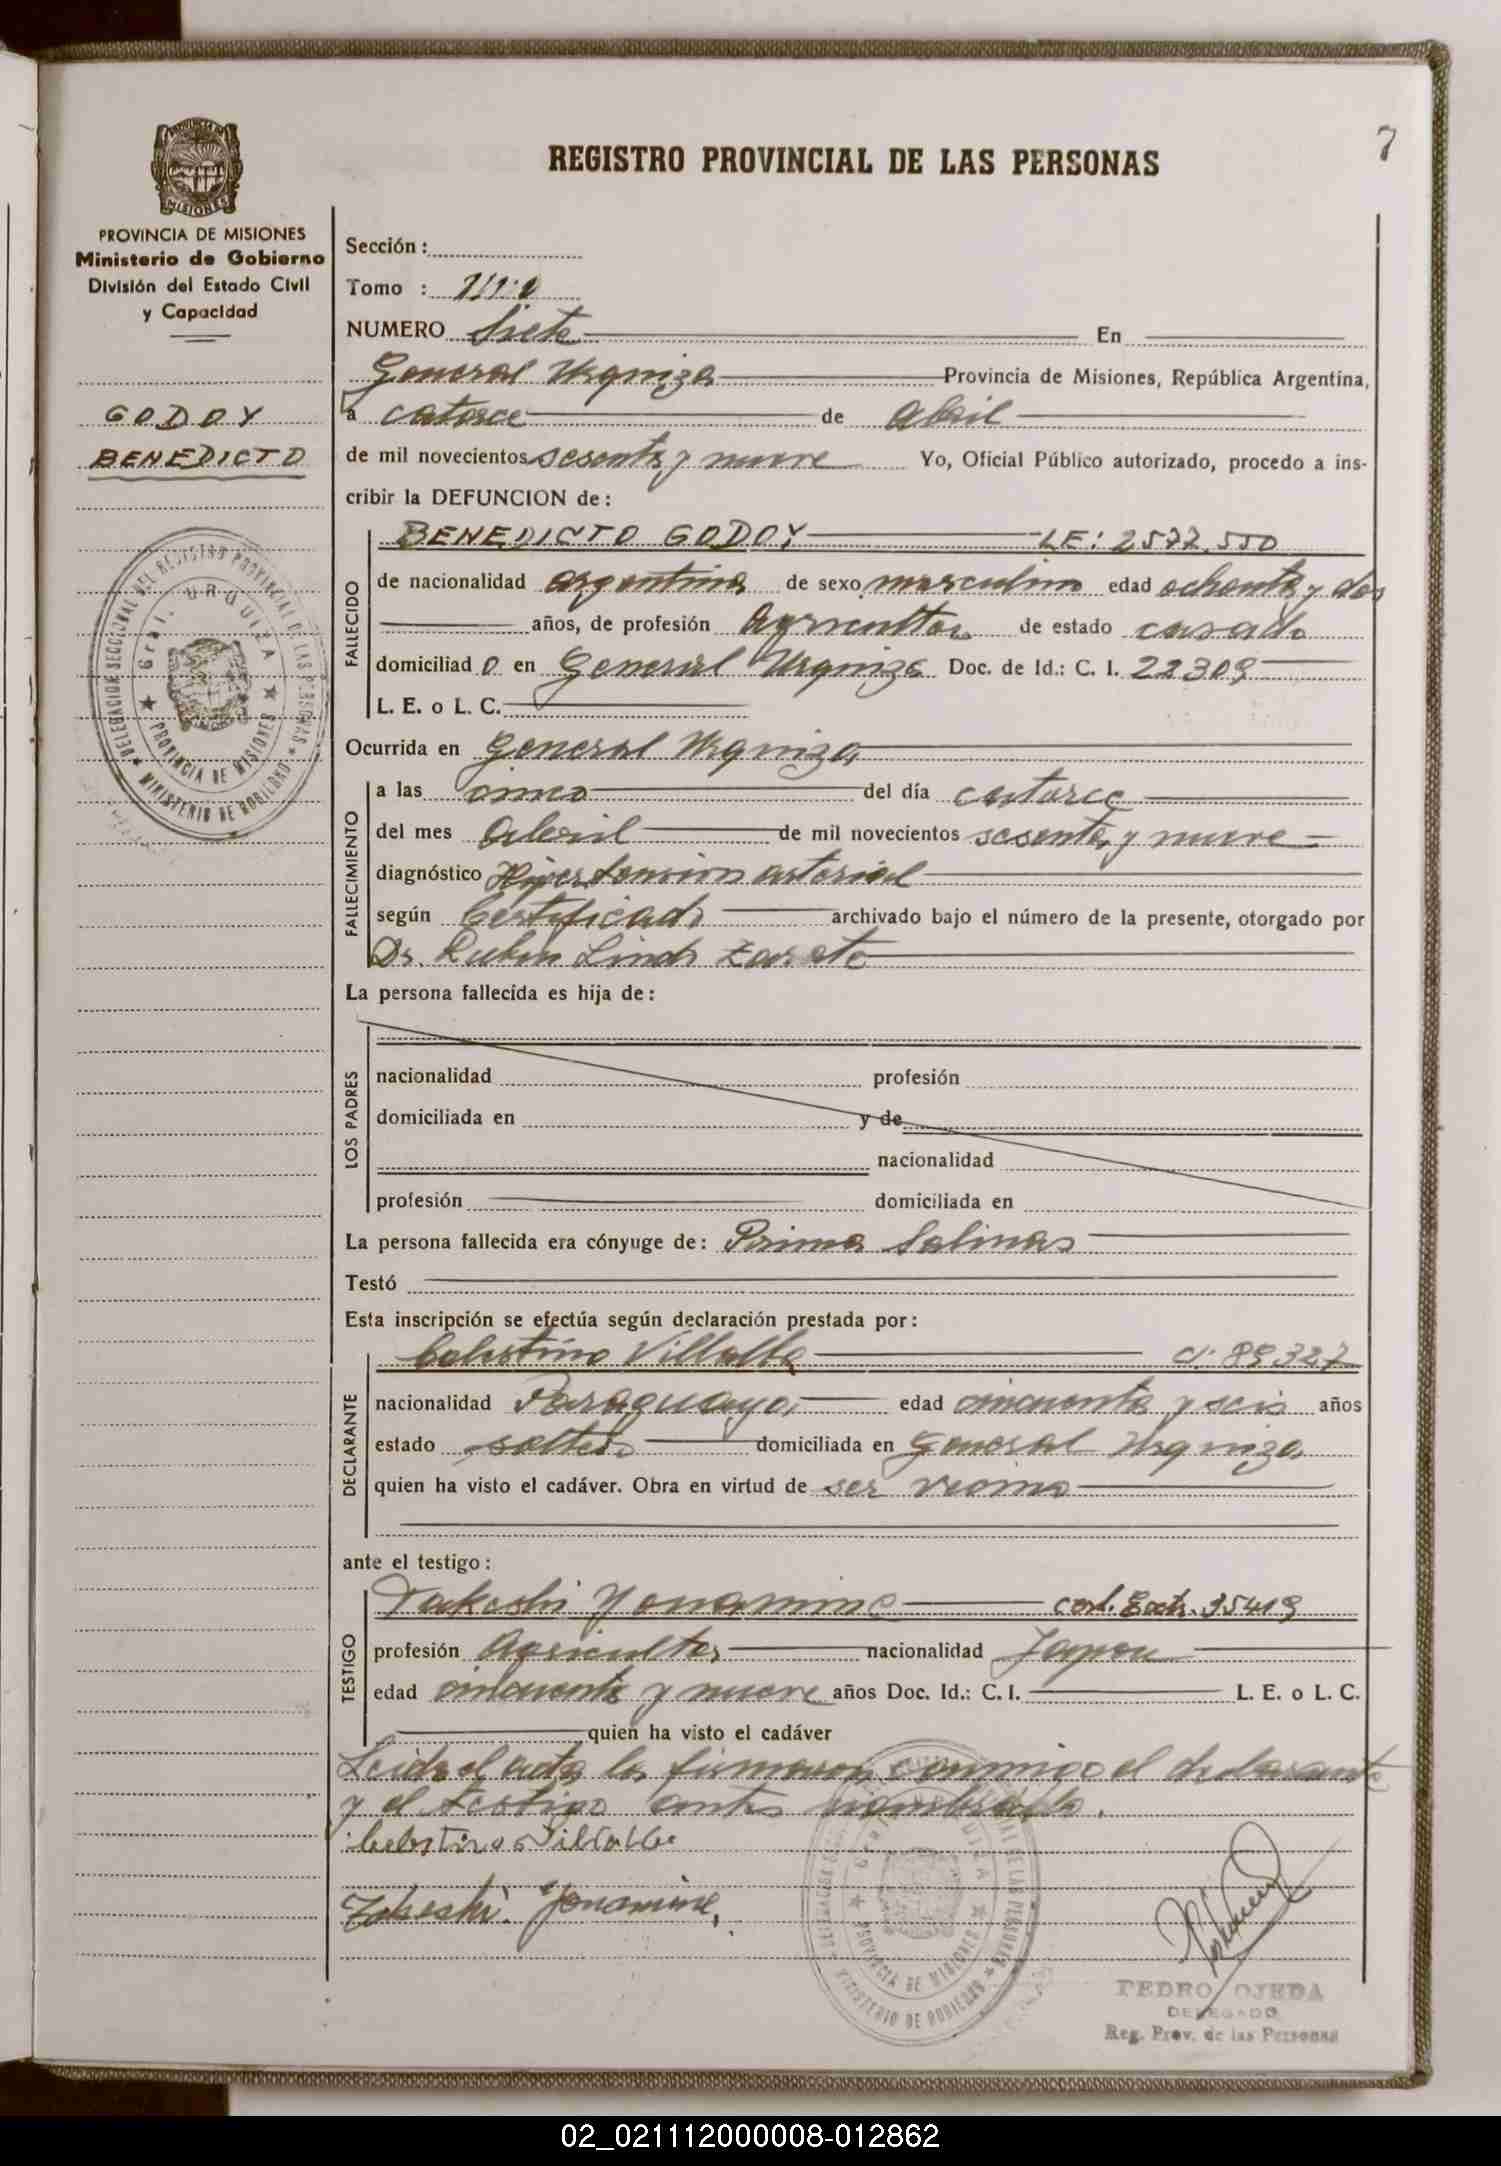 7
REGISTRO PROVINCIAL DE LAS PERSONAS
PROVINCIA DE MISIONES
Ministerio de Gobierno
División del Estado Civil
y Capacidad
GODOY
BENEDICTO
Sección :
Tomo :
NUMERO Siete En
General Urquiza Provincia de Misiones, República Argentina,
a catorce de abril
de mil novecientos sesenta y nueve Yo, Oficial Público autorizado, procedo a ins-
cribir la DEFUNCION de :
FALLECIDO
BENEDICTO GODOY LE: 2577.550
de nacionalidad argentina de sexo masculino edad ochenta y dos
años, de profesión Agricultor de estado casado
domiciliad o en General Urquiza Doc. de Id.: C. I. 22309
L. E. o L. C.
Ocurrida en General Urquiza
FALLECIMIENTO
a las cinco del día catorce
del mes Abril de mil novecientos sesenta y nueve
diagnóstico Hipertension arterial
según Certificado archivado bajo el número de la presente, otorgado por
Dr. Ruben Zarate
La persona fallecida es hija de :
LOS PADRES
nacionalidad profesión
domiciliada en y de
nacionalidad
profesión domiciliada en
La persona fallecida era cónyuge de : Prima Salinas
Testó
Esta inscripción se efectúa según declaración prestada por :
DECLARANTE
Celestino Villalba CI: 89327
nacionalidad Paraguaya edad cincuenta y seis años
estado soltero domiciliada en General Urquiza
quien ha visto el cadáver. Obra en virtud de ser vecino
ante el testigo :
TESTIGO
Takeshi Yonamine 95419
profesión Agricultor nacionalidad Japon
edad cincuenta y nueve años Doc. Id.: C. I. L. E. o L. C.
quien ha visto el cadáver
Leida el acta la firmaron conmigo el declarante
y el testigo antes nombrado.
Celestino Villalba
Takeshi Yonamine,
DELEGACION SECCIONAL DEL REGISTRO PROVINCIAL DE LAS PERSONAS
Gral. URQUIZA
PROVINCIA DE MISIONES
MINISTERIO DE GOBIERNO
PEDRO OJEDA
DELEGADO
Reg. Prov. de las Personas
02_021112000008-012862